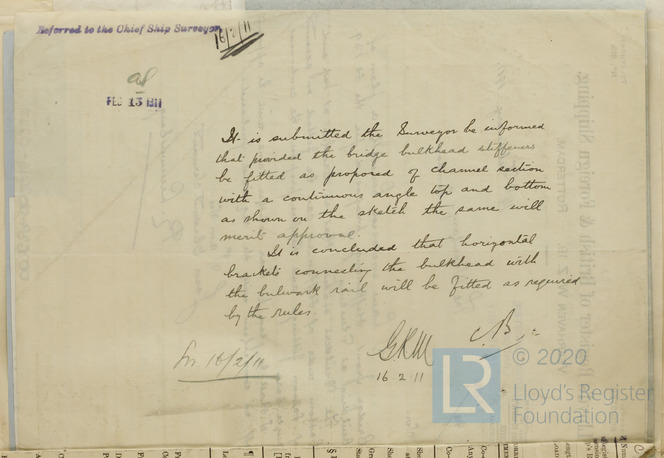 Referred to the Chief Ship Surveyor
16/2/11
FEB 13 1911
It is submitted the Surveyor be informed
that provided the bridge bulkhead stiffeners
be fitted as proposed of channel section
with a continuous angle top and bottom
as shown on the sketch the same will
merit approval.
It is concluded that horizontal
brackets connecting the bulkhead with
the bulwark rail will be fitted as required
by the rules
16/2/11
GRM
16 2 11
C.B.
LR
© 2020
Lloyd's Register
Foundation